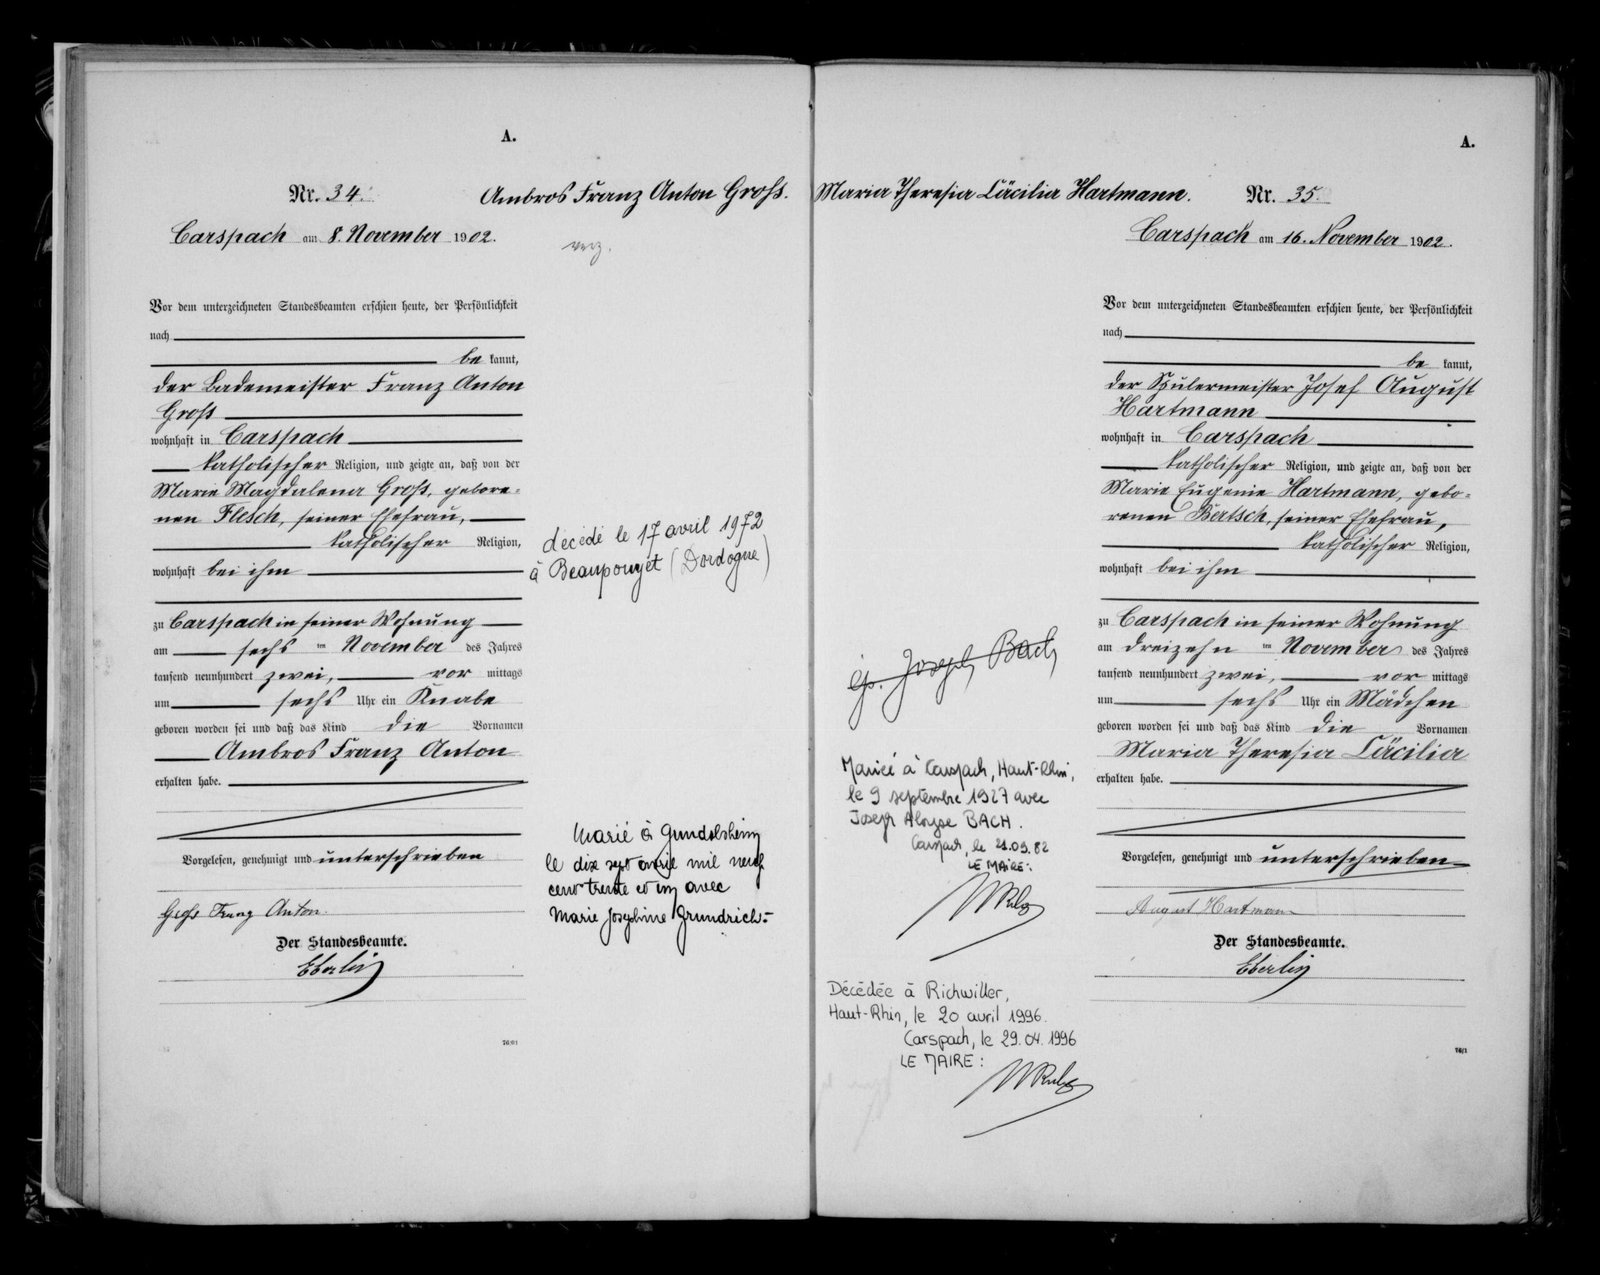 A.
Nr. 34.
Ambros Franz Anton Groß.
Carspach am 8. November 1902.
verz.
Vor dem unterzeichneten Standesbeamten erschien heute, der Persönlichkeit
nach
be kannt,
der Bademeister Franz Anton
Groß
wohnhaft in Carspach
katholischer Religion, und zeigte an, daß von der
Marie Magdalena Groß, gebore-
nen Flesch, seiner Ehefrau,
katholischer Religion,
wohnhaft bei ihm
zu Carspach in seiner Wohnung
am sechs ten November des Jahres
tausend neunhundert zwei, vor mittags
um sechs Uhr ein Knabe
geboren worden sei und daß das Kind die Vornamen
Ambros Franz Anton
erhalten habe.
Vorgelesen, genehmigt und unterschrieben
Groß Franz Anton
Der Standesbeamte.
Eberlin
76/01
décédé le 17 avril 1972
à Beaupouyet (Dordogne)
Marié à Gundolsheim
le dix sept avril mil neuf
cent trente et un avec
Marie Joséphine Grundrich.-
A.
Maria Theresia Cäcilia Hartmann.
Nr. 35.
Carspach am 16. November 1902.
Vor dem unterzeichneten Standesbeamten erschien heute, der Persönlichkeit
nach
be kannt,
der Spulermeister Josef August
Hartmann
wohnhaft in Carspach
katholischer Religion, und zeigte an, daß von der
Marie Eugenie Hartmann, gebo-
renen Bertsch, seiner Ehefrau,
katholischer Religion,
wohnhaft bei ihm
zu Carspach in seiner Wohnung
am dreizehn ten November des Jahres
tausend neunhundert zwei, vor mittags
um sechs Uhr ein Mädchen
geboren worden sei und daß das Kind die Vornamen
Maria Theresia Cäcilia
erhalten habe.
Vorgelesen, genehmigt und unterschrieben
August Hartmann
Der Standesbeamte.
Eberlin
76/1
Joseph Bach
Mariée à Carspach, Haut-Rhin,
le 9 septembre 1927 avec
Joseph Aloyse BACH.
Carspach, le 21.09.82
LE MAIRE:
Décédée à Richwiller,
Haut-Rhin, le 20 avril 1996.
Carspach, le 29.04.1996
LE MAIRE: